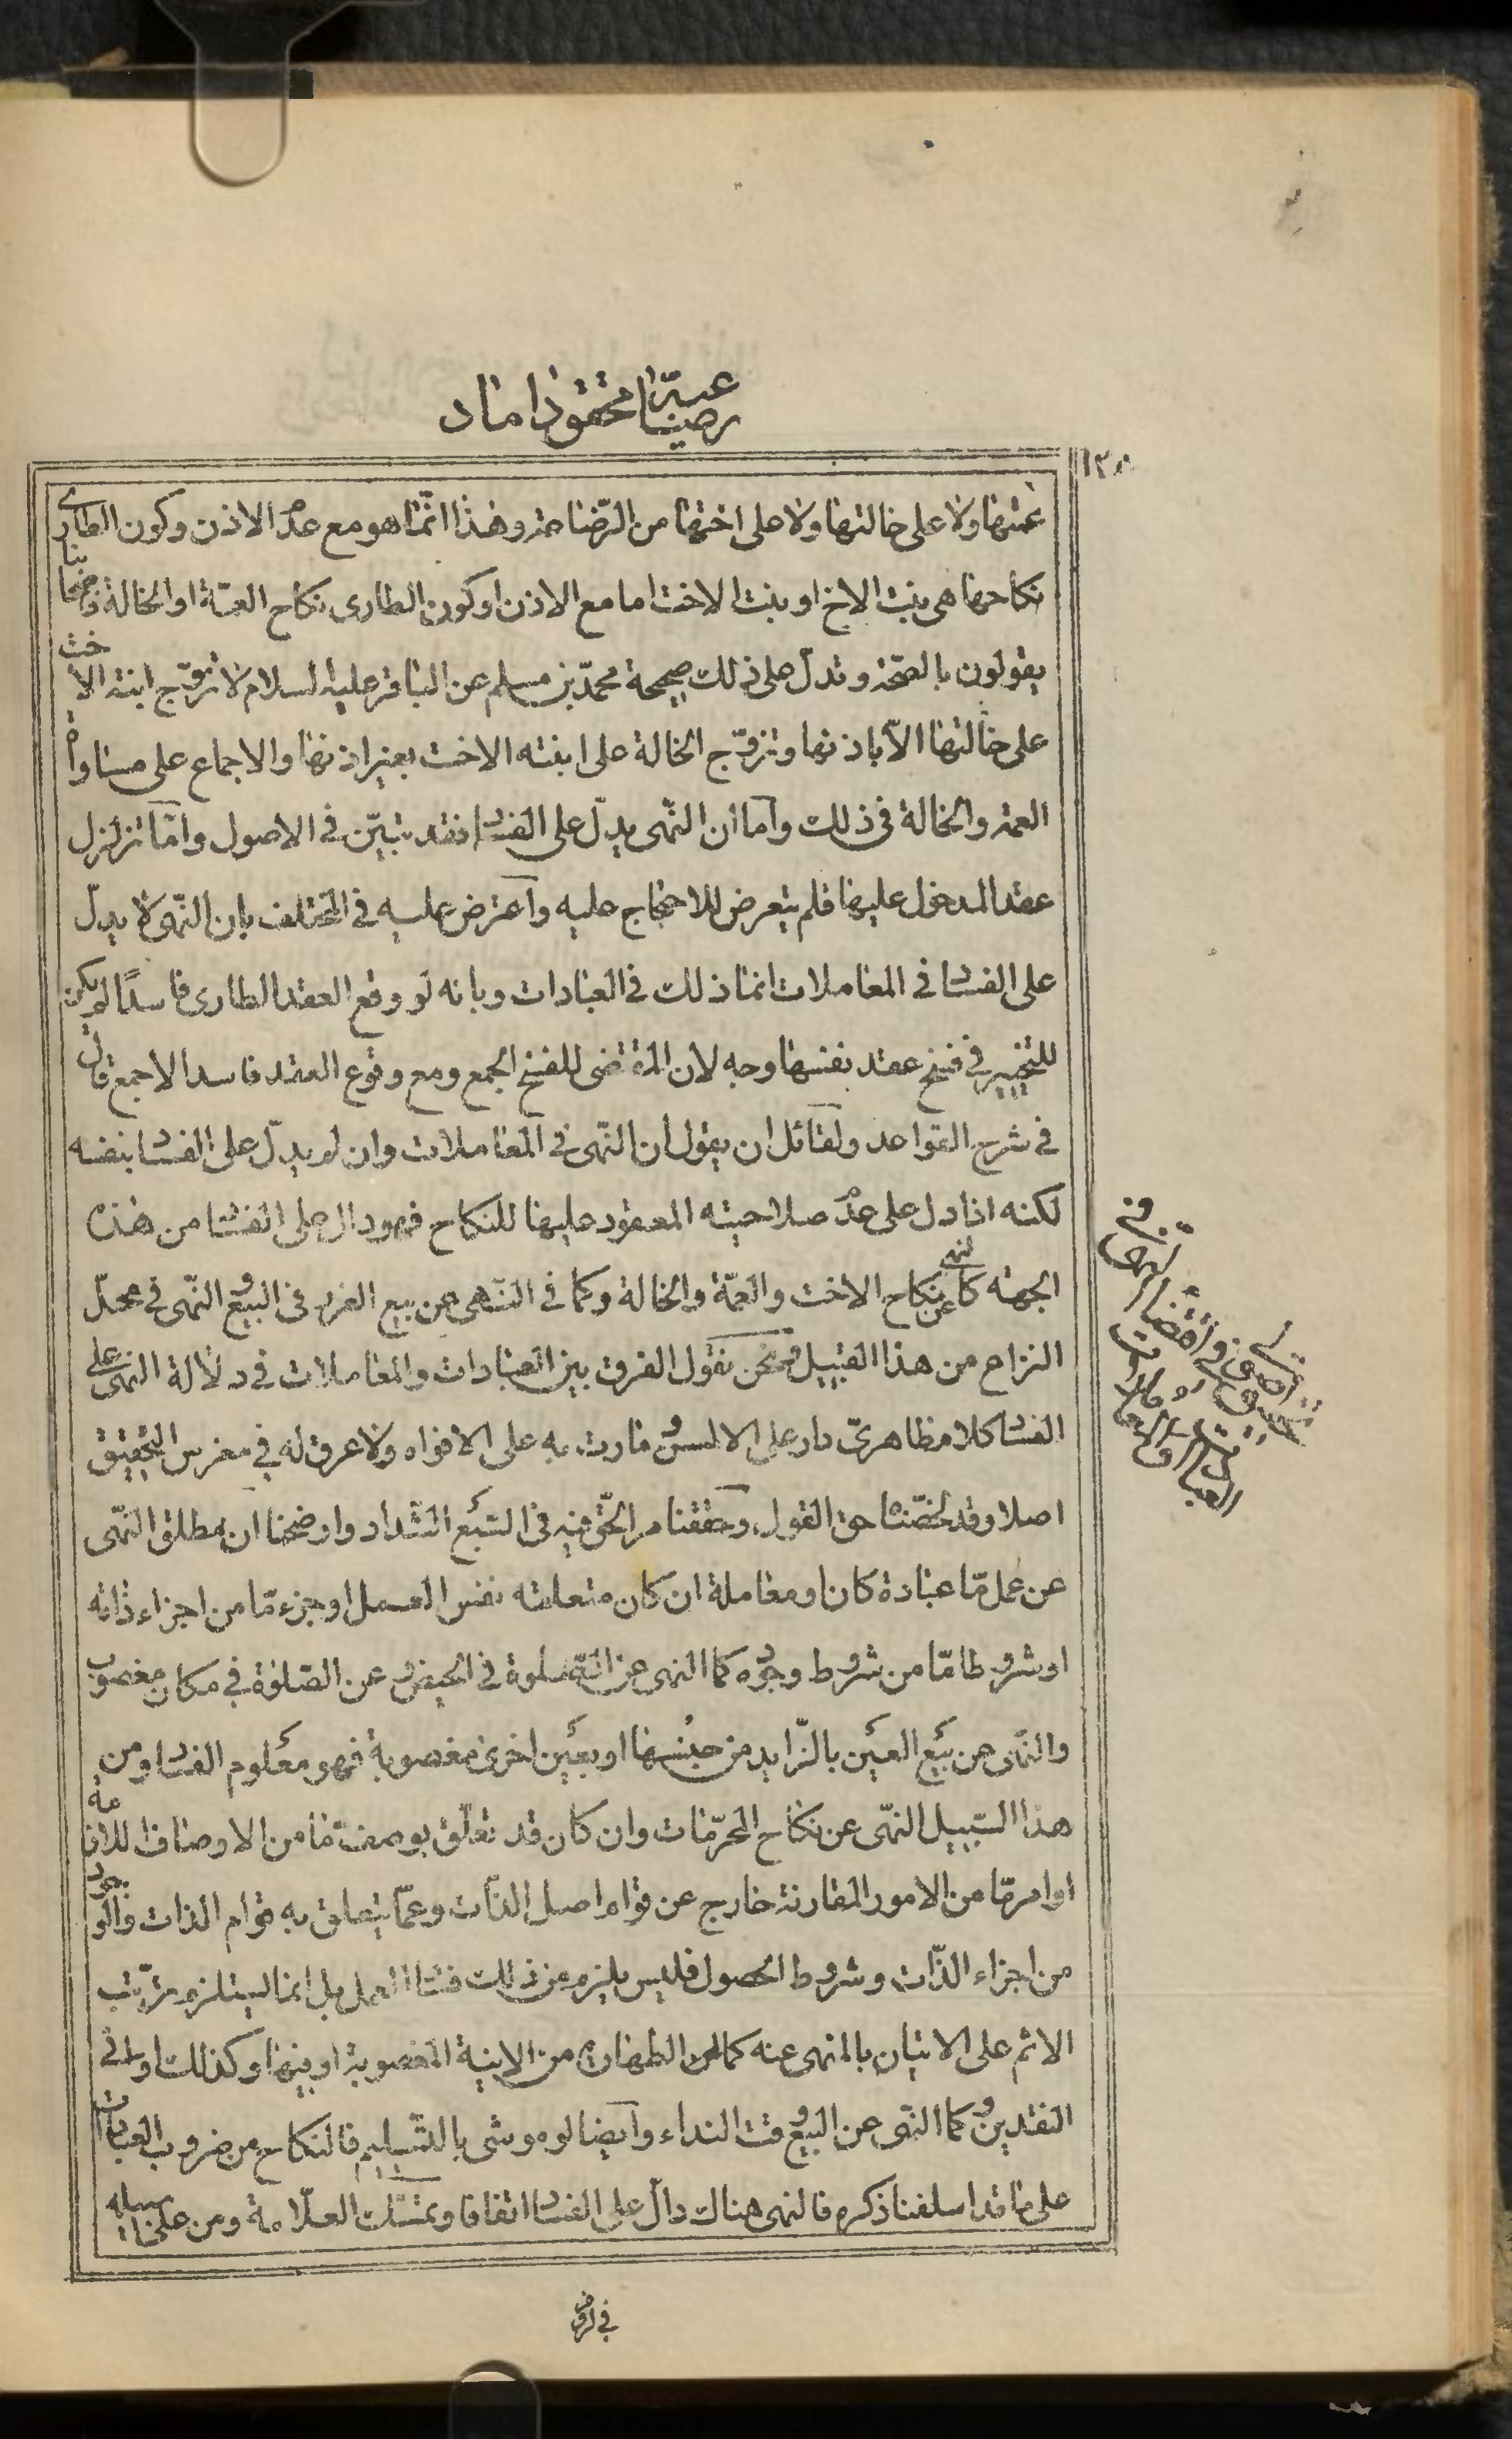 رضاعية محقق داماد
١٣٨
عمتها ولا على خالتها ولا على اختها من الرضاعة وهذا انما هو مع عدم الاذن وكون الطارى
نكاحها هى بنت الاخ او بنت الاخت اما مع الاذن او كون الطارى نكاح العمة او الخالة فاصحابنا
يقولون بالصحة وتدل على ذلك صحيحة محمد بن مسلم عن الباقر عليه السلام لا تزوج ابنة الاخت
على خالتها الا باذنها وتزوج الخالة على ابنته الاخت بغير اذنها والاجماع على مساواة
العمة والخالة فى ذلك واما ان النهى يدل على الفساد فقد تبين فى الاصول واما تزلزل
عقد المدخول عليها فلم يتعرض للاحتجاج عليه واعترض عليه فى المختلف بان النهى لا يدل
على الفساد فى المعاملات انما ذلك فى العبادات وبانه لو وقع العقد الطارى فاسدا لم يكن
للتخيير فى فسخ عقد نفسها وجه لان المقتضى للفسخ الجمع ومع وقوع العقد فاسدا لا جمع قال
فى شرح القواعد ولقائل ان يقول ان النهى فى المعاملات وان لم يدل على الفساد بنفسه
لكنه اذا دل على عدم صلاحيته المعقود عليها للنكاح فهو دال على الفساد من هذه
الجهة كالنهى عن نكاح الاخت والعمة والخالة وكما فى النهى عن بيع الغرر فى البيع والنهى فى محل
النزاع من هذا القبيل ونحن نقول الفرق بين العبادات والمعاملات فى دلالة النهى على
الفساد كلام ظاهرى دار على الالسن ومارت به على الافواه ولا عرق له فى مغرس التحقيق
اصلا وقد لخصنا حق القول وحققنا مر الحق فيه فى السبع الشداد واوضحنا ان مطلق النهى
عن عمل ما عبادة كان او معاملة ان كان متعلقه نفس العمل او جزء ما من اجزاء ذاته
او شرطا ما من شروط وجوده كما النهى عن الصلوة فى الحيض وعن الصلوة فى مكان مغصوب
والنهى عن بيع العين بالزايد من جنسها او بعين اخرى مغصوبة فهو معلوم الفساد ومن
هذا السبيل النهى عن نكاح المحرمات وان كان قد تعلق بوصف ما من الاوصاف اللازمة
او امر ما من الامور المقارنة خارج عن قوام اصل الذات وعما يتعلق به قوام الذات والوجود
من اجزاء الذات وشروط الحصول فليس يلزم من ذلك فساد العمل بل انما يستلزم ترتب
الاثم على الاتيان بالمنهى عنه كما فى الطهارة من الانية المغصوبة او فيها وكذلك اوانى
النقدين وكما النهى عن البيع وقت النداء وايضا لو موشى بالتسليم فالنكاح من ضروب العبادات
على ما قد اسلفنا ذكره فالنهى هناك دال على الفساد اتفاقا وتمسك العلامة ومن على سبيله
فى
فى
العبادات